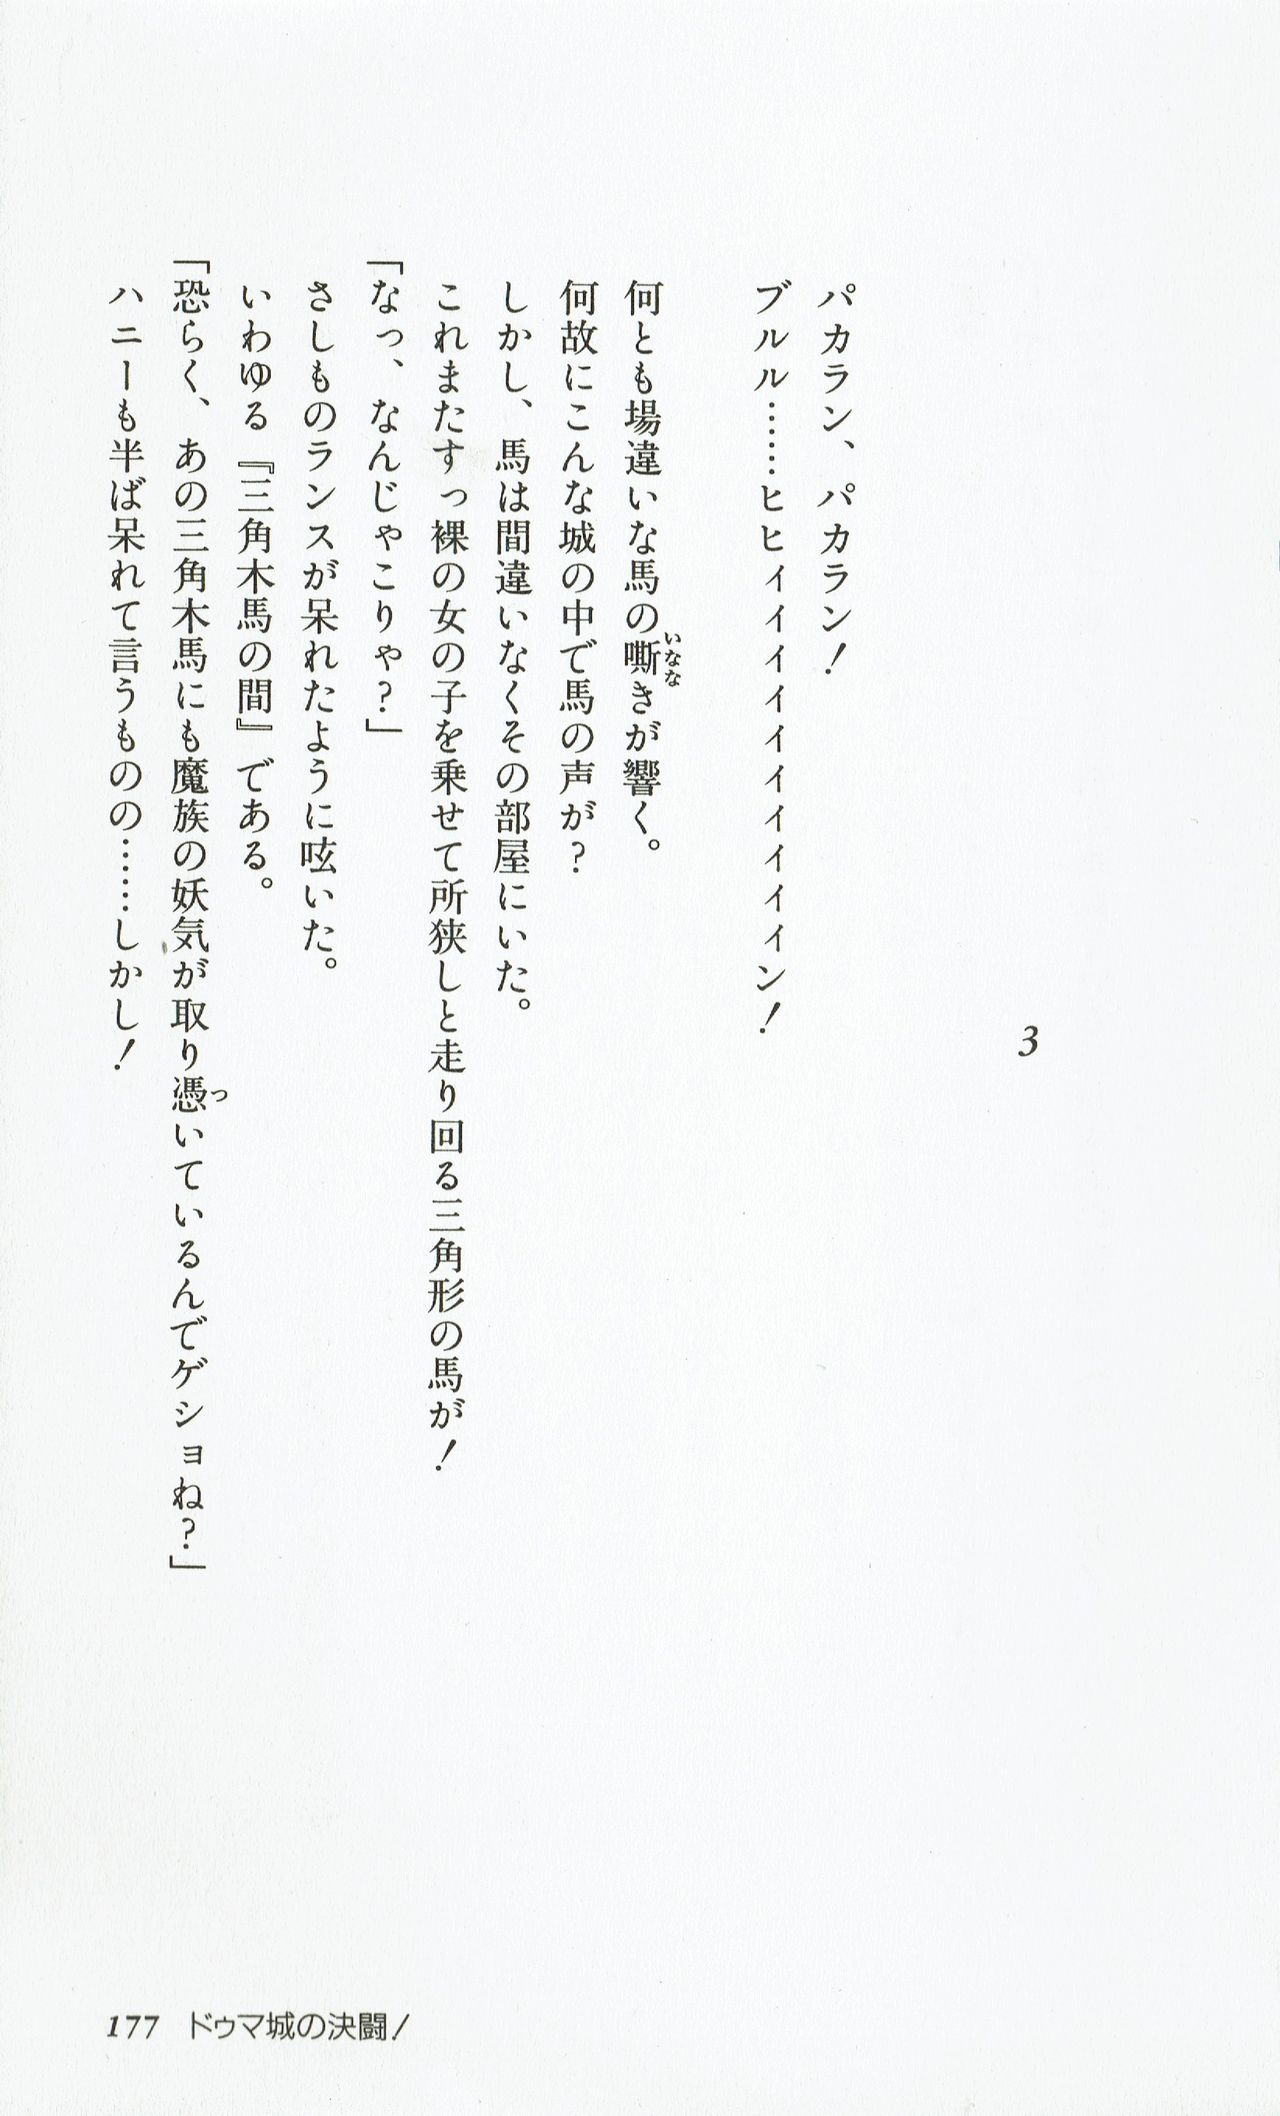 3
パカラン、パカラン！
ブルル……ヒヒィィィィィィィィィィン！
何とも場違いな馬の嘶きが響く。
いなな
何故にこんな城の中で馬の声が？
しかし、馬は間違いなくその部屋にいた。
これまたすっ裸の女の子を乗せて所狭しと走り回る三角形の馬が！
「なっ、なんじゃこりゃ？」
さしものランスが呆れたように呟いた。
いわゆる『三角木馬の間』である。
「恐らく、あの三角木馬にも魔族の妖気が取り憑いているんでゲショね？」
つ
ハニーも半ば呆れて言うものの……しかし！
177 ドゥマ城の決闘！